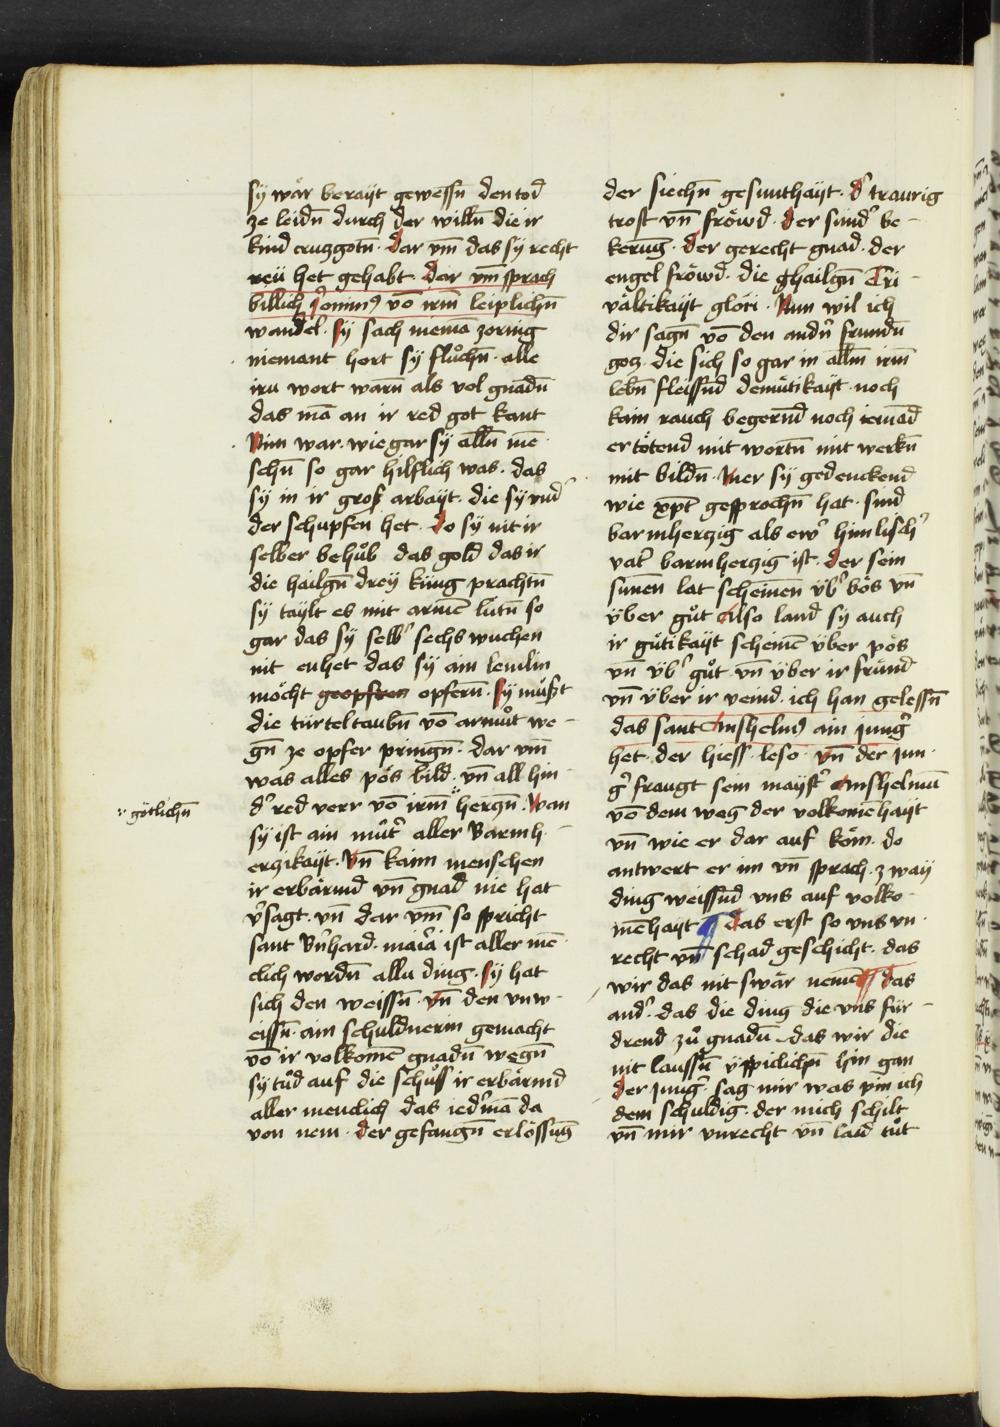 sÿ wär beraÿt gewessn̄ den tod
ze leidn̄ durch der willn̄ die ir
kind cruzgotn̄ · dar vm̄ das sÿ recht
reü het gehabt · dar vm̄ sprach
billich vō irm̄ leiplichn̄
wandel · sÿ sach niemā zornig
niemant hort sÿ flůchn̄ · alle
iru wort warn̄ als vol gnādn̄
das mā an ir red got kant
Nim war · wie gar sÿ alln̄ mē
schn̄ so gar hilflich was · das
sÿ in ir groß arbaÿt · die sÿ vnd
der schupfen het · do sÿ nit ir
selber behůb das gold das ir
die hailgn̄ dreÿ küng prachtn̄
sÿ taÿlt es mit armē lütn̄ so
gar das sÿ selb' sechs wuchen
nit enhet das sÿ ain lemlin
möcht geopfren opfern̄ · sÿ můßt
die türteltaubn̄ vō armůt we-
gn̄ ze opfer pringn̄ · dar vm̄
was alles pös bild · vn̄ all hin
d' red verr vō irm̄ hergn̄ · Wan
götlichn̄
sÿ ist ain můt' aller Barmh-
erzikaÿt · Vn̄ kaim menschen
ir erbärmd vn̄ gnad nie hat
v'sagt · vn̄ dar vm̄ so spricht
sant Bn̄hard · maīa ist aller mē
clich wordn̄ allu ding · sÿ hat
sich den weissn̄ · vn̄ den vnw-
eissn̄ · ain schuldnerin gemacht
vō ir volkomē gnadn̄ wegn̄
sÿ tůd auf die schůss ir erbärmd
aller menclich das ied'mā da
von nem · der gefangn̄ erlössūg
der siechn̄ gesunthaÿt · d' traurig
trost vn̄ fröwd · der sünd' be-
kerūg · der gerecht gnad · der
engel fröwd · die hailgn̄ Tri-
vältikaÿt glöri · Nun wil ich
dir sagn̄ vō den andn̄ frundn̄
gotz · die sich so gar in allm̄ irm̄
lebn̄ fleissn̄d demütikaÿt · noch
kain rauch begern̄d noch iemād
ertötend mit wortn̄ mit werkn̄
mit bildn̄ · Mer sÿ gedenckend
wie xp̄c gesprochn̄ hat · sind
barmherzig als ew' himlisch'
vat' barmherzig ist · der sein
sunen lat scheinen vb' bös vn̄
über gůt also land sÿ auch
ir gütikaÿt scheinē über pös
vn̄ üb' gůt · vn̄ über ir fründ
vn̄ über ir veind · ich han gelessn̄
das sant Anshelm9 ain jung'
het · der hiess leso · vn̄ der jun
g' fraugt sein maÿst' Anshelmū
vō dem weg der volkomēhaÿt
vn̄ wie er dar auf köm · do
antwert er im vn̄ sprach · zwaÿ
ding weissn̄d vns auf volko-
mēhaÿt ¶ das erst so vns vn
recht vn̄ schad geschicht · das
wir das nit swär nemē ¶ das
and' · das die ding die vns für-
drend zů gnadn̄ · das wir die
nit laussn̄ üppiclichn̄ hin gan
der jung' sag mir was pin ich
dem schuldig · der mich schilt
vn̄ mir vnrecht vn̄ laid tůt